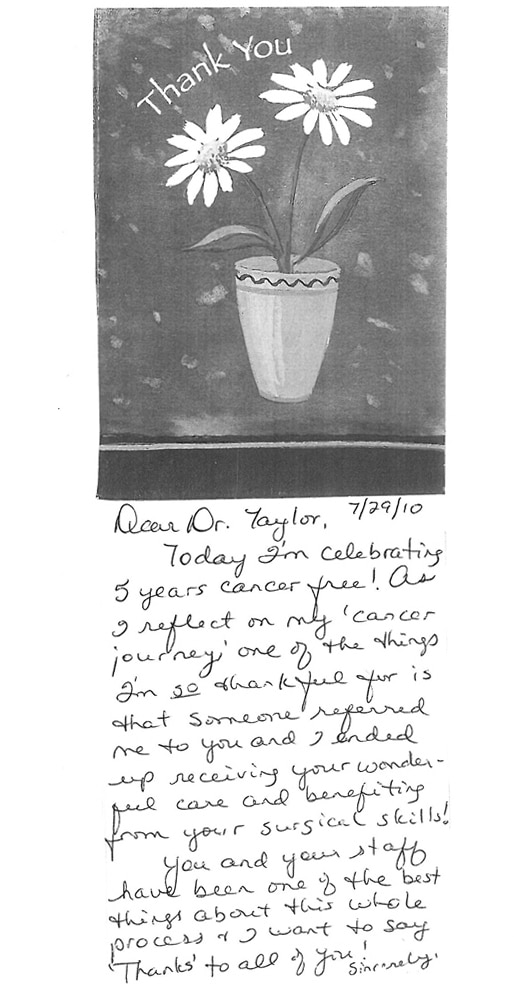 Thank You
Dear Dr. Taylor, 7/29/10
Today I'm celebrating
5 years cancer free! As
I reflect on my 'cancer
journey,' one of the things
I'm so thankful for is
that someone referred
me to you and I ended
up receiving your wonder-
ful care and benefiting
from your surgical skills!
You and your staff
have been one of the best
things about this whole
process & I want to say
'Thanks' to all of you!
Sincerely,